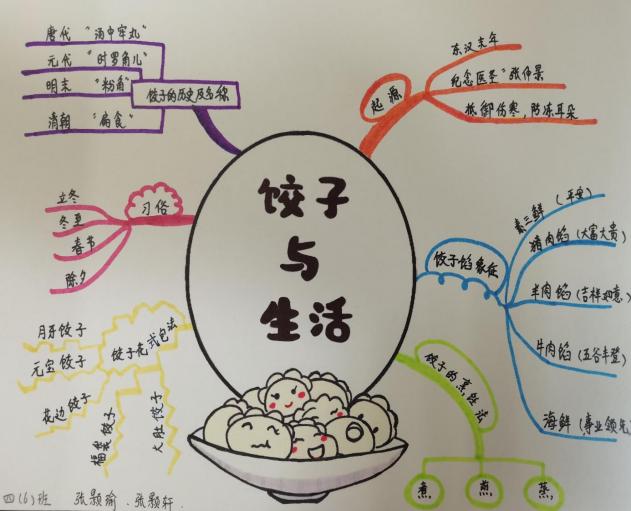 饺子
与
生活
饺子的历史及名称
唐代 "汤中牢丸"
元代 "时罗角儿"
明末 "粉角"
清朝 "扁食"
起源
东汉末年
纪念医圣"张仲景
抵御伤寒,防冻耳朵
习俗
立冬
冬至
春节
除夕
饺子馅象征
素三鲜 (平安)
猪肉馅 (大富大贵)
羊肉馅 (吉祥如意)
牛肉馅 (五谷丰登)
海鲜 (事业领先
饺子花式包法
月牙饺子
元宝饺子
花边饺子
福袋饺子
大肚饺子
饺子的烹饪法
煮
煎
蒸
四(6)班 张颢瑜、张颢轩